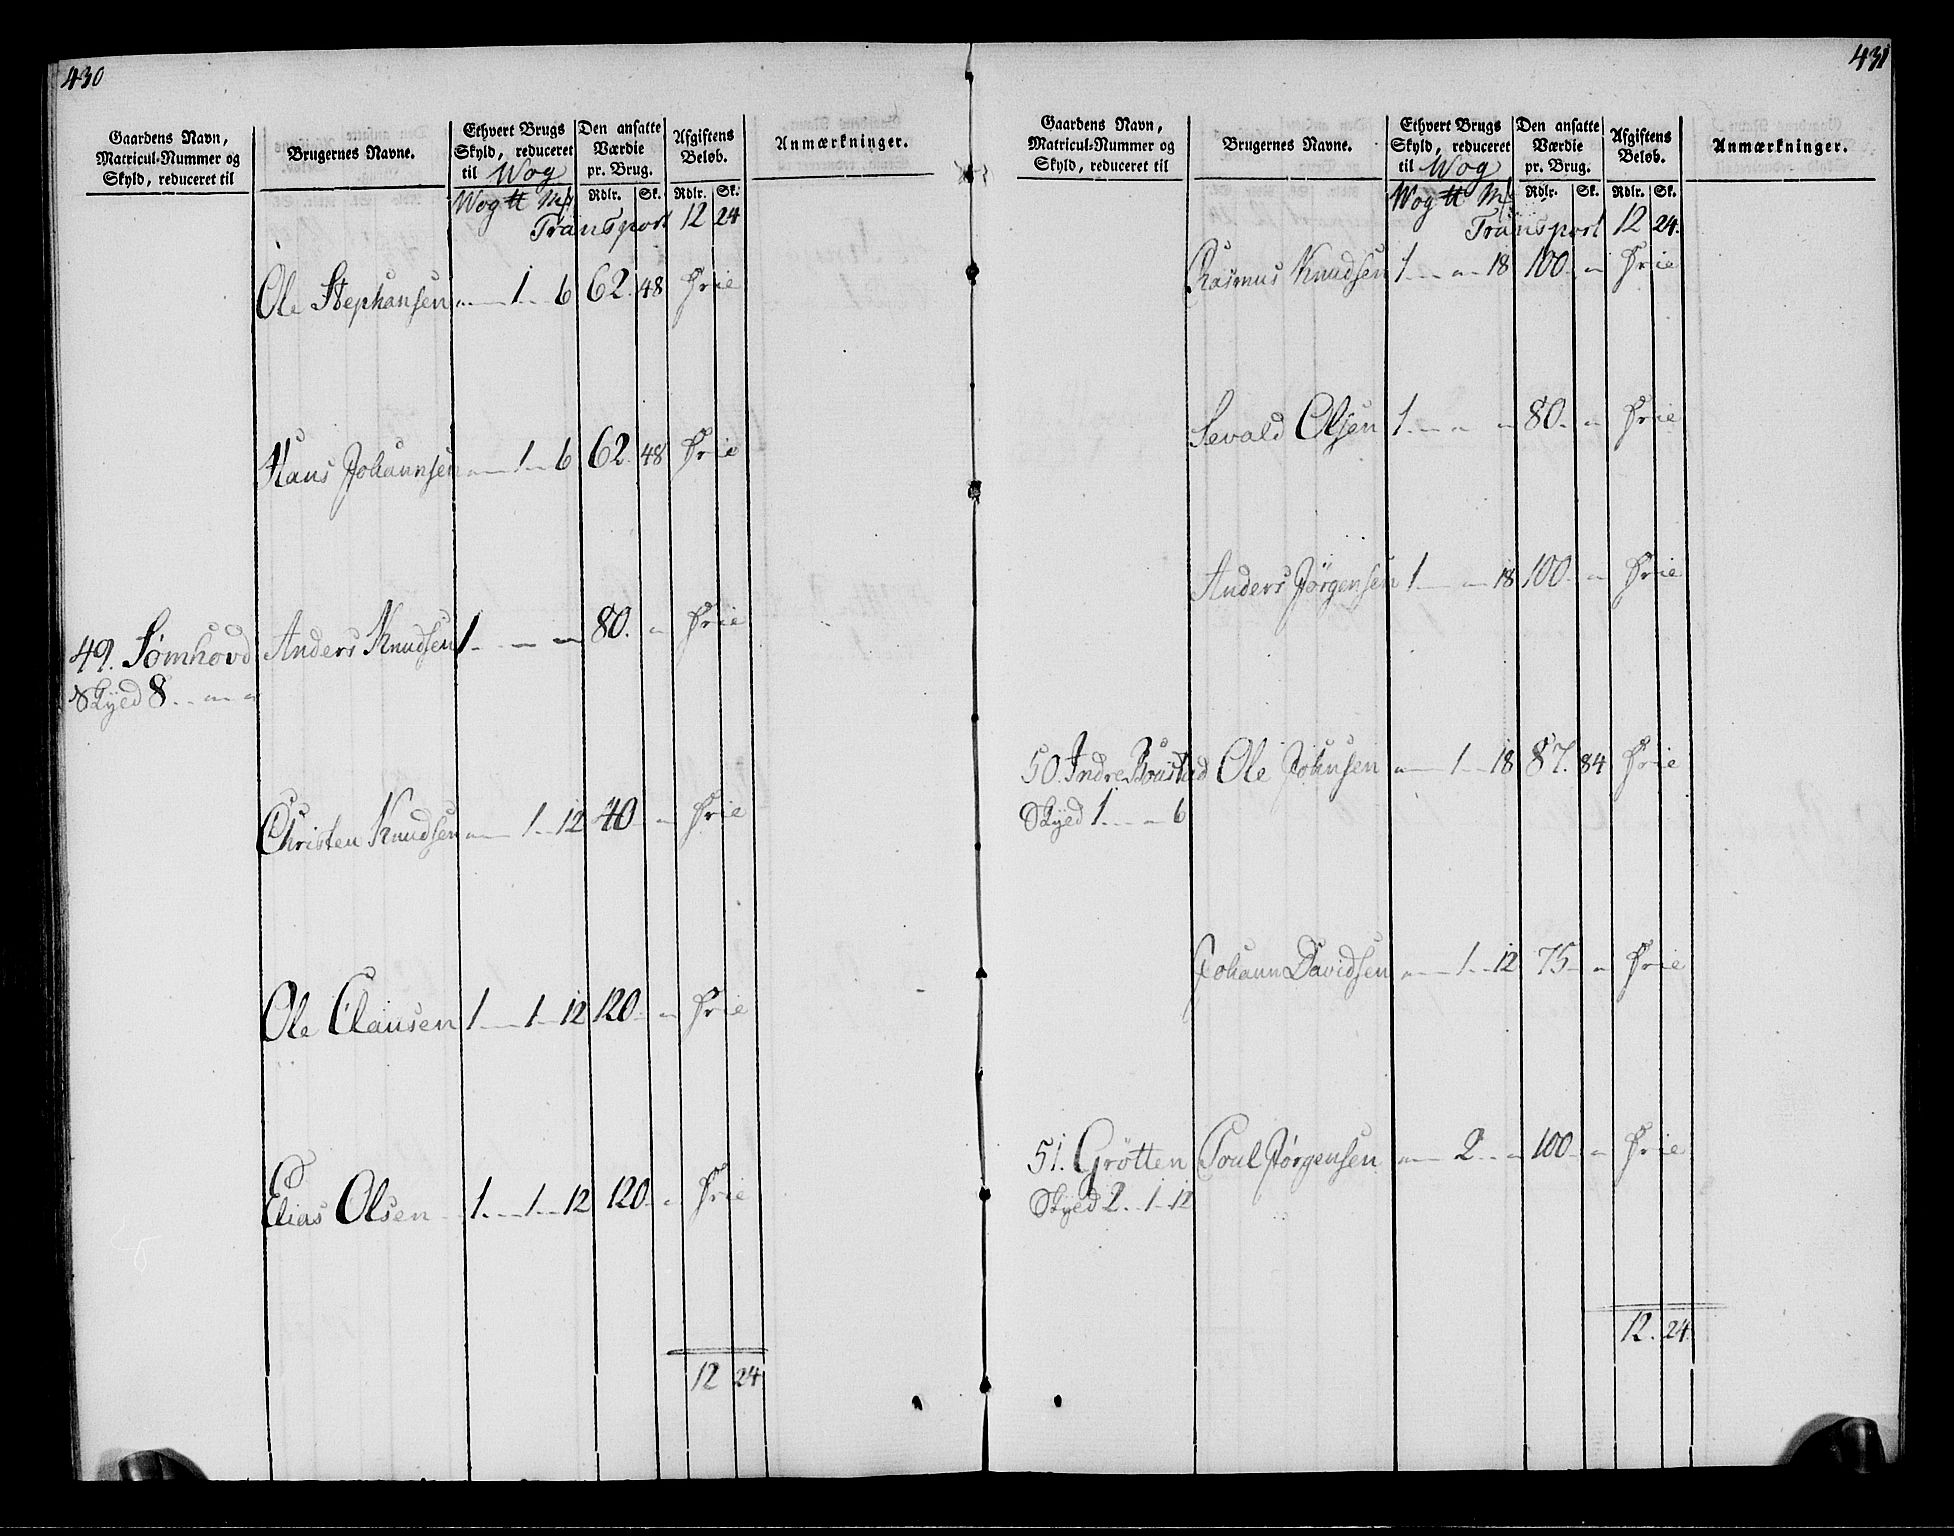 430
Gaardens Navn,
Matricul-Nummer og
Skyld, reduceret til
Brugernes Navne.
Ethvert Brugs
Skyld, reduceret
til Wog
Wog ℔ M℔
Den ansatte
Værdie
pr. Brug.
Rdlr. Sk.
Afgiftens
Beløb.
Rdlr. Sk.
Anmærkninger.
Transport 12 24
Ole Stephansen „ — 1 - 6 62. 48 Frie
Hans Johannsen „ — 1 - 6 62. 48 Frie
49. Sømhovd Anders Knudsen 1 - — — 80. „ Frie
Skyed 8 - - „ — „
Christen Knudsen „ — 1 - 12 40 „ Frie
Ole Clausen 1 — 1 - 12 120 - „ Frie
Elias Olsen 1. — 1 - 12 120 - „ Frie
12 24
431
Gaardens Navn,
Matricul-Nummer og
Skyld, reduceret til
Brugernes Navne.
Ethvert Brugs
Skyld, reduceret
til Wog
Wog ℔ M℔
Den ansatte
Værdie
pr. Brug.
Rdlr. Sk.
Afgiftens
Beløb.
Rdlr. Sk.
Anmærkninger.
Transport 12 24.
Rasmus Knudsen 1 - — „ - 18 100 - „ Frie
Sevald Olsen 1 - — „ - „ 80 - „ Frie
Anders Jørgensen 1 — „ - 18 100 - „ Frie
50. Indre Ole Johnsen „ — 1 - 18 87. 84 Frie
Skyed 1 - - „ - 6
Johann Davidsen „ — 1 - 12 75 - „ Frie
51. Grötten Poul Jørgensen „ — 2 - „ 100 - „ Frie
Skyed 2 - 1 - 12
12. 24